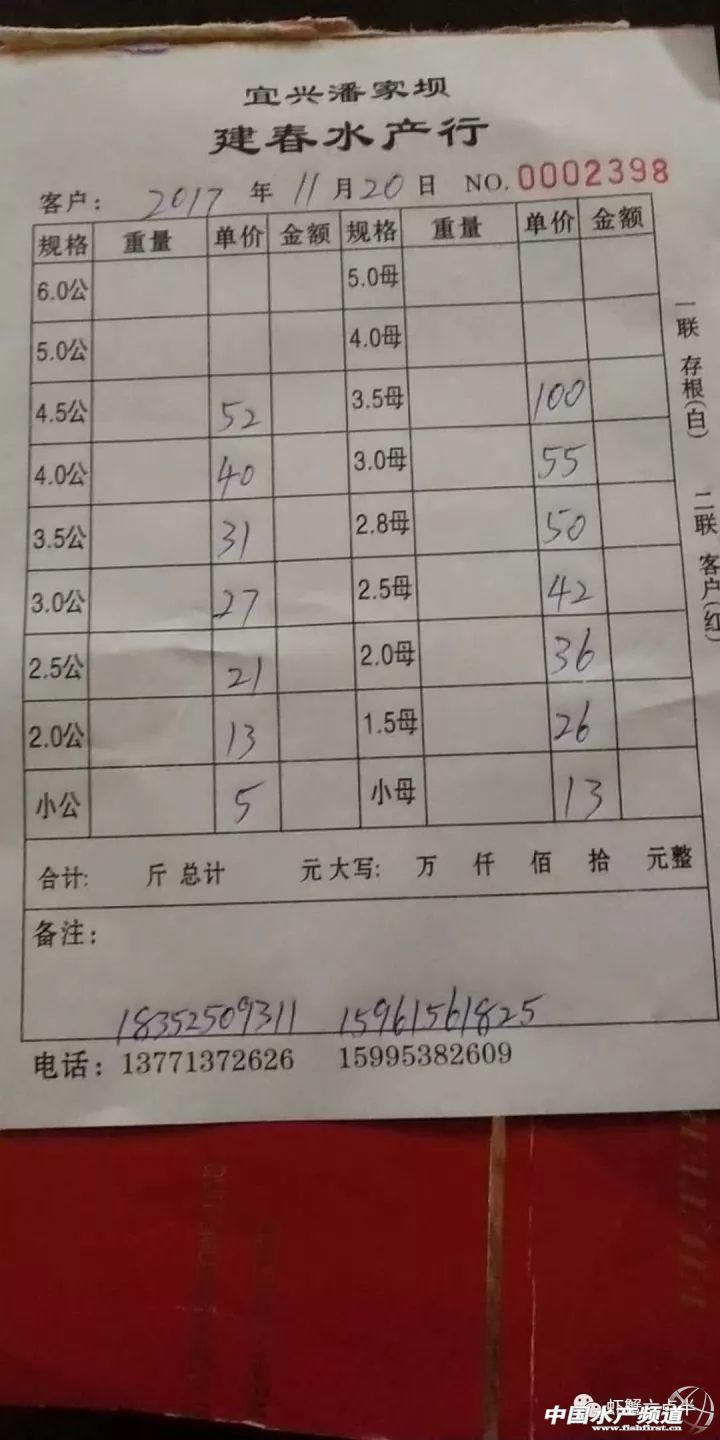 宜兴潘家坝
建春水产行
客户: 2017 年 11 月 20 日 NO. 0002398
规格 重量 单价 金额 规格 重量 单价 金额
6.0公 5.0母
5.0公 4.0母
4.5公 52 3.5母 100
4.0公 40 3.0母 55
3.5公 31 2.8母 50
3.0公 27 2.5母 42
2.5公 21 2.0母 36
2.0公 13 1.5母 26
小公 5 小母 13
合计: 斤 总计 元 大写: 万 仟 佰 拾 元整
备注:
18352509311 15961561825
电话: 13771372626 15995382609
一联 存根(白)
二联 客户(红)
虾蟹六点半
中国水产频道
www.fishfirst.cn